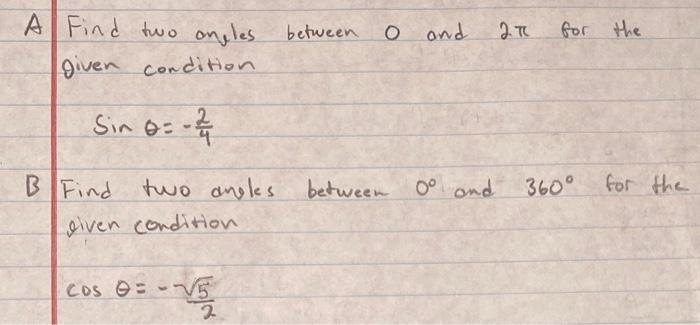 A Find two angles between 0 and 2π for the
given condition
Sin θ = -2/4
B Find two angles between 0° and 360° for the
given condition
cos θ = -√5/2